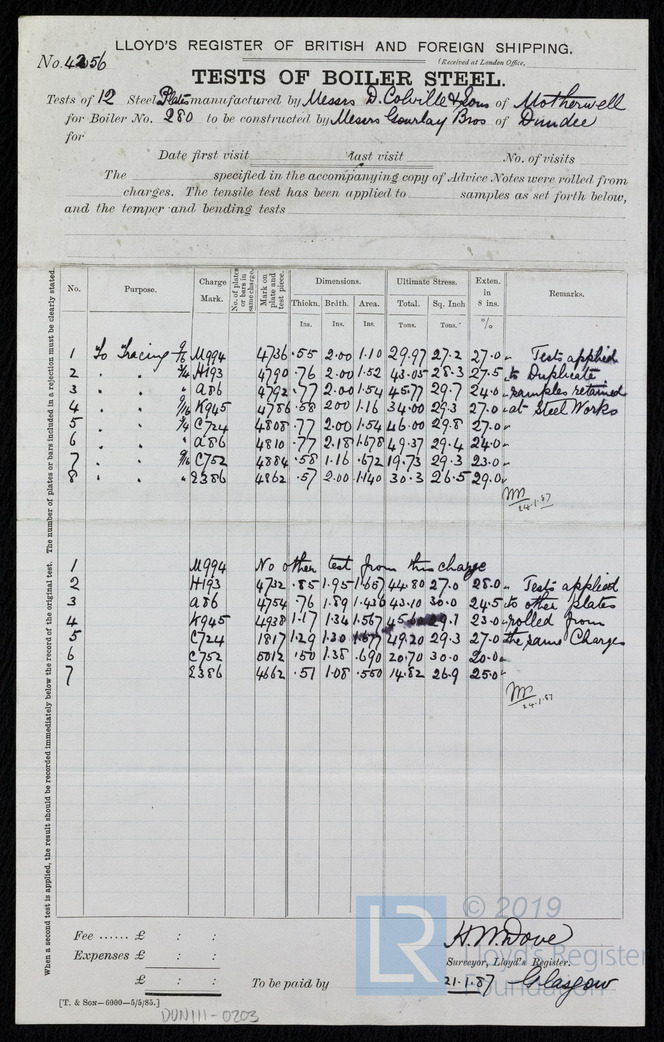 LLOYD'S REGISTER OF BRITISH AND FOREIGN SHIPPING.
No. 4256 (Received at London Office,
TESTS OF BOILER STEEL.
Tests of 12 Steel Plates manufactured by Messrs D. Colville & Sons of Motherwell
for Boiler No. 280 to be constructed by Messrs Gourlay Bros of Dundee
for
Date first visit last visit No. of visits
The specified in the accompanying copy of Advice Notes were rolled from
charges. The tensile test has been applied to samples as set forth below,
and the temper and bending tests
No. Purpose. Charge Mark. No. of plates or bars in same charge. Mark on plate and test piece. Dimensions. Ultimate Stress. Exten. in 8 ins. Remarks.
Thickn. Brdth. Area. Total. Sq. Inch
Ins. Ins. Ins. Tons. Tons. %
1 To Tracing 9/16 M994 4736 .55 2.00 1.10 29.97 27.2 27.0 Tests applied
2 " " 3/4 H193 4790 .76 2.00 1.52 43.05 28.3 27.5 to Duplicate
3 " " " A86 4792 .77 2.00 1.54 45.77 29.7 24.0 samples retained
4 " " 9/16 K945 4786 .58 200 1.16 34.00 29.3 27.0 at Steel Works
5 " " 3/4 C724 4808 .77 2.00 1.54 46.00 29.8 27.0
6 " " " A86 4810 .77 2.18 1.678 49.37 29.4 24.0
7 " " 9/16 C752 4884 .58 1.16 .672 19.73 29.3 23.0
8 " " " E386 4862 .57 2.00 1.140 30.3 26.5 29.0
24.1.87
1 M994 No other test from this charge
2 H193 4732 .85 1.95 1.657 44.80 27.0 28.0 Tests applied
3 A86 4754 .76 1.89 1.436 43.10 30.0 24.5 to other plates
4 K945 4938 1.17 1.34 1.567 29.1 23.0 rolled from
5 C724 1817 1.29 1.30 49.20 29.3 27.0 the same Charges
6 C752 5012 .50 1.38 .690 20.70 30.0 20.0
7 E386 4662 .51 1.08 .550 14.82 26.9 25.0
24.1.87
When a second test is applied, the result should be recorded immediately below the record of the original test. The number of plates or bars included in a rejection must be clearly stated.
Fee ...... £ : :
Expenses £ : :
£ : :
To be paid by
H. W. Dove
Surveyor, Lloyd's Register.
21.1.87 Glasgow
[T. & Son—6000—5/5/85.]
DUN111-0203
LR
© 2019
Lloyd's Register
Foundation